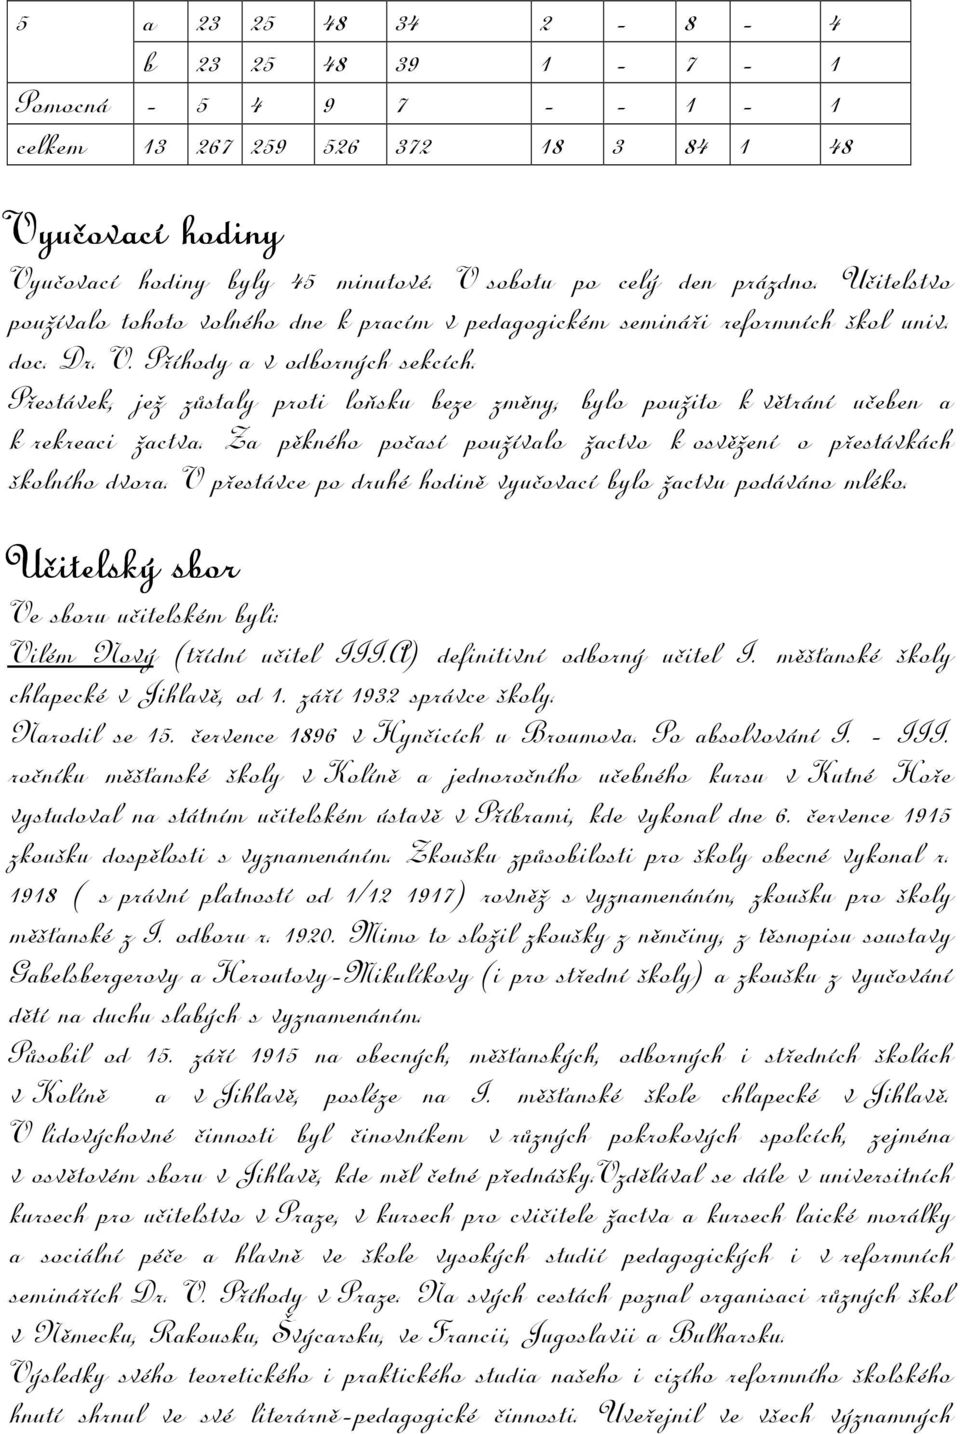 5 a 23 25 48 34 2 - 8 - 4
b 23 25 48 39 1 - 7 - 1
Pomocná - 5 4 9 7 - - 1 - 1
celkem 13 267 259 526 372 18 3 84 1 48
Vyučovací hodiny
Vyučovací hodiny byly 45 minutové. V sobotu po celý den prázdno. Učitelstvo
používalo tohoto volného dne k pracím v pedagogickém semináři reformních škol univ.
doc. Dr. V. Příhody a v odborných sekcích.
Přestávek, jež zůstaly proti loňsku beze změny, bylo použito k větrání učeben a
k rekreaci žactva. Za pěkného počasí používalo žactvo k osvěžení o přestávkách
školního dvora. V přestávce po druhé hodině vyučovací bylo žactvu podáváno mléko.
Učitelský sbor
Ve sboru učitelském byli:
Vilém Nový (třídní učitel III.A) definitivní odborný učitel I. měšťanské školy
chlapecké v Jihlavě, od 1. září 1932 správce školy.
Narodil se 15. července 1896 v Hynčicích u Broumova. Po absolvování I. - III.
ročníku měšťanské školy v Kolíně a jednoročního učebného kursu v Kutné Hoře
vystudoval na státním učitelském ústavě v Příbrami, kde vykonal dne 6. července 1915
zkoušku dospělosti s vyznamenáním. Zkoušku způsobilosti pro školy obecné vykonal r.
1918 ( s právní platností od 1/12 1917) rovněž s vyznamenáním, zkoušku pro školy
měšťanské z I. odboru r. 1920. Mimo to složil zkoušky z němčiny, z těsnopisu soustavy
Gabelsbergerovy a Heroutovy-Mikulíkovy (i pro střední školy) a zkoušku z vyučování
dětí na duchu slabých s vyznamenáním.
Působil od 15. září 1915 na obecných, měšťanských, odborných i středních školách
v Kolíně a v Jihlavě, posléze na I. měšťanské škole chlapecké v Jihlavě.
V lidovýchovné činnosti byl činovníkem v různých pokrokových spolcích, zejména
v osvětovém sboru v Jihlavě, kde měl četné přednášky.Vzdělával se dále v universitních
kursech pro učitelstvo v Praze, v kursech pro cvičitele žactva a kursech laické morálky
a sociální péče a hlavně ve škole vysokých studií pedagogických i v reformních
seminářích Dr. V. Příhody v Praze. Na svých cestách poznal organisaci různých škol
v Německu, Rakousku, Švýcarsku, ve Francii, Jugoslavii a Bulharsku.
Výsledky svého teoretického i praktického studia našeho i cizího reformního školského
hnutí shrnul ve své literárně-pedagogické činnosti. Uveřejnil ve všech významných